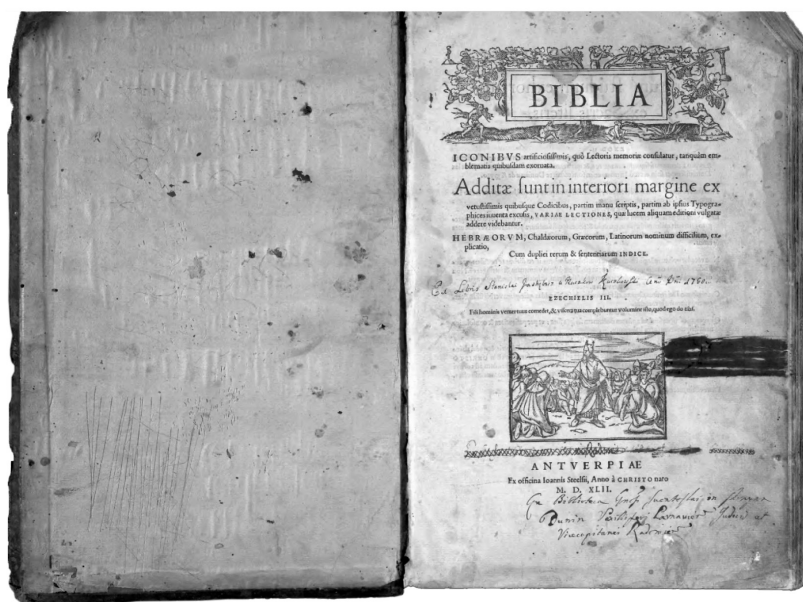 BIBLIA
ICONIBVS artificiosissimis, quò Lectoris memoriæ consulatur, tanquàm em-
blematis quibusdam exornata.
Additæ sunt in interiori margine ex
vetustissimis quibusque Codicibus, partim manu scriptis, partim ab ipsius Typogra-
phices inuenta excusis, VARIÆ LECTIONES, quæ lucem aliquam editioni vulgatæ
addere videbantur.
HEBRÆORVM, Chaldæorum, Græcorum, Latinorum nominum difficilium, ex-
plicatio,
Cum duplici rerum & sententiarum INDICE.
Ex Libris Stanislai 1750
EZECHIELIS III.
Fili hominis venter tuus comedet, & viscera tua complebuntur volumine isto, quod ego do tibi.
ANTVERPIAE
Ex officina Ioannis Steelsii, Anno à CHRISTO nato
M. D. XLII.
Ex Biblioteca
Dunin